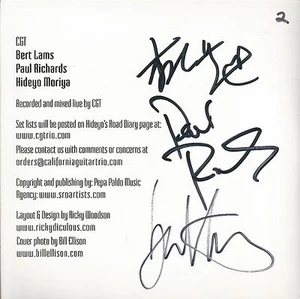 2
CGT
Bert Lams
Paul Richards
Hideyo Moriya
Recorded and mixed live by CGT
Set lists will be posted on Hideyo's Road Diary page at:
www.cgtrio.com
Please contact us with comments or concerns at
orders@californiaguitartrio.com
Copyright and publishing by: Pepa Paldo Music
Agency: www.sroartists.com
Layout & Design by Ricky Woodson
www.rickydiculous.com
Cover photo by Bill Ellison
www.billellison.com
Paul